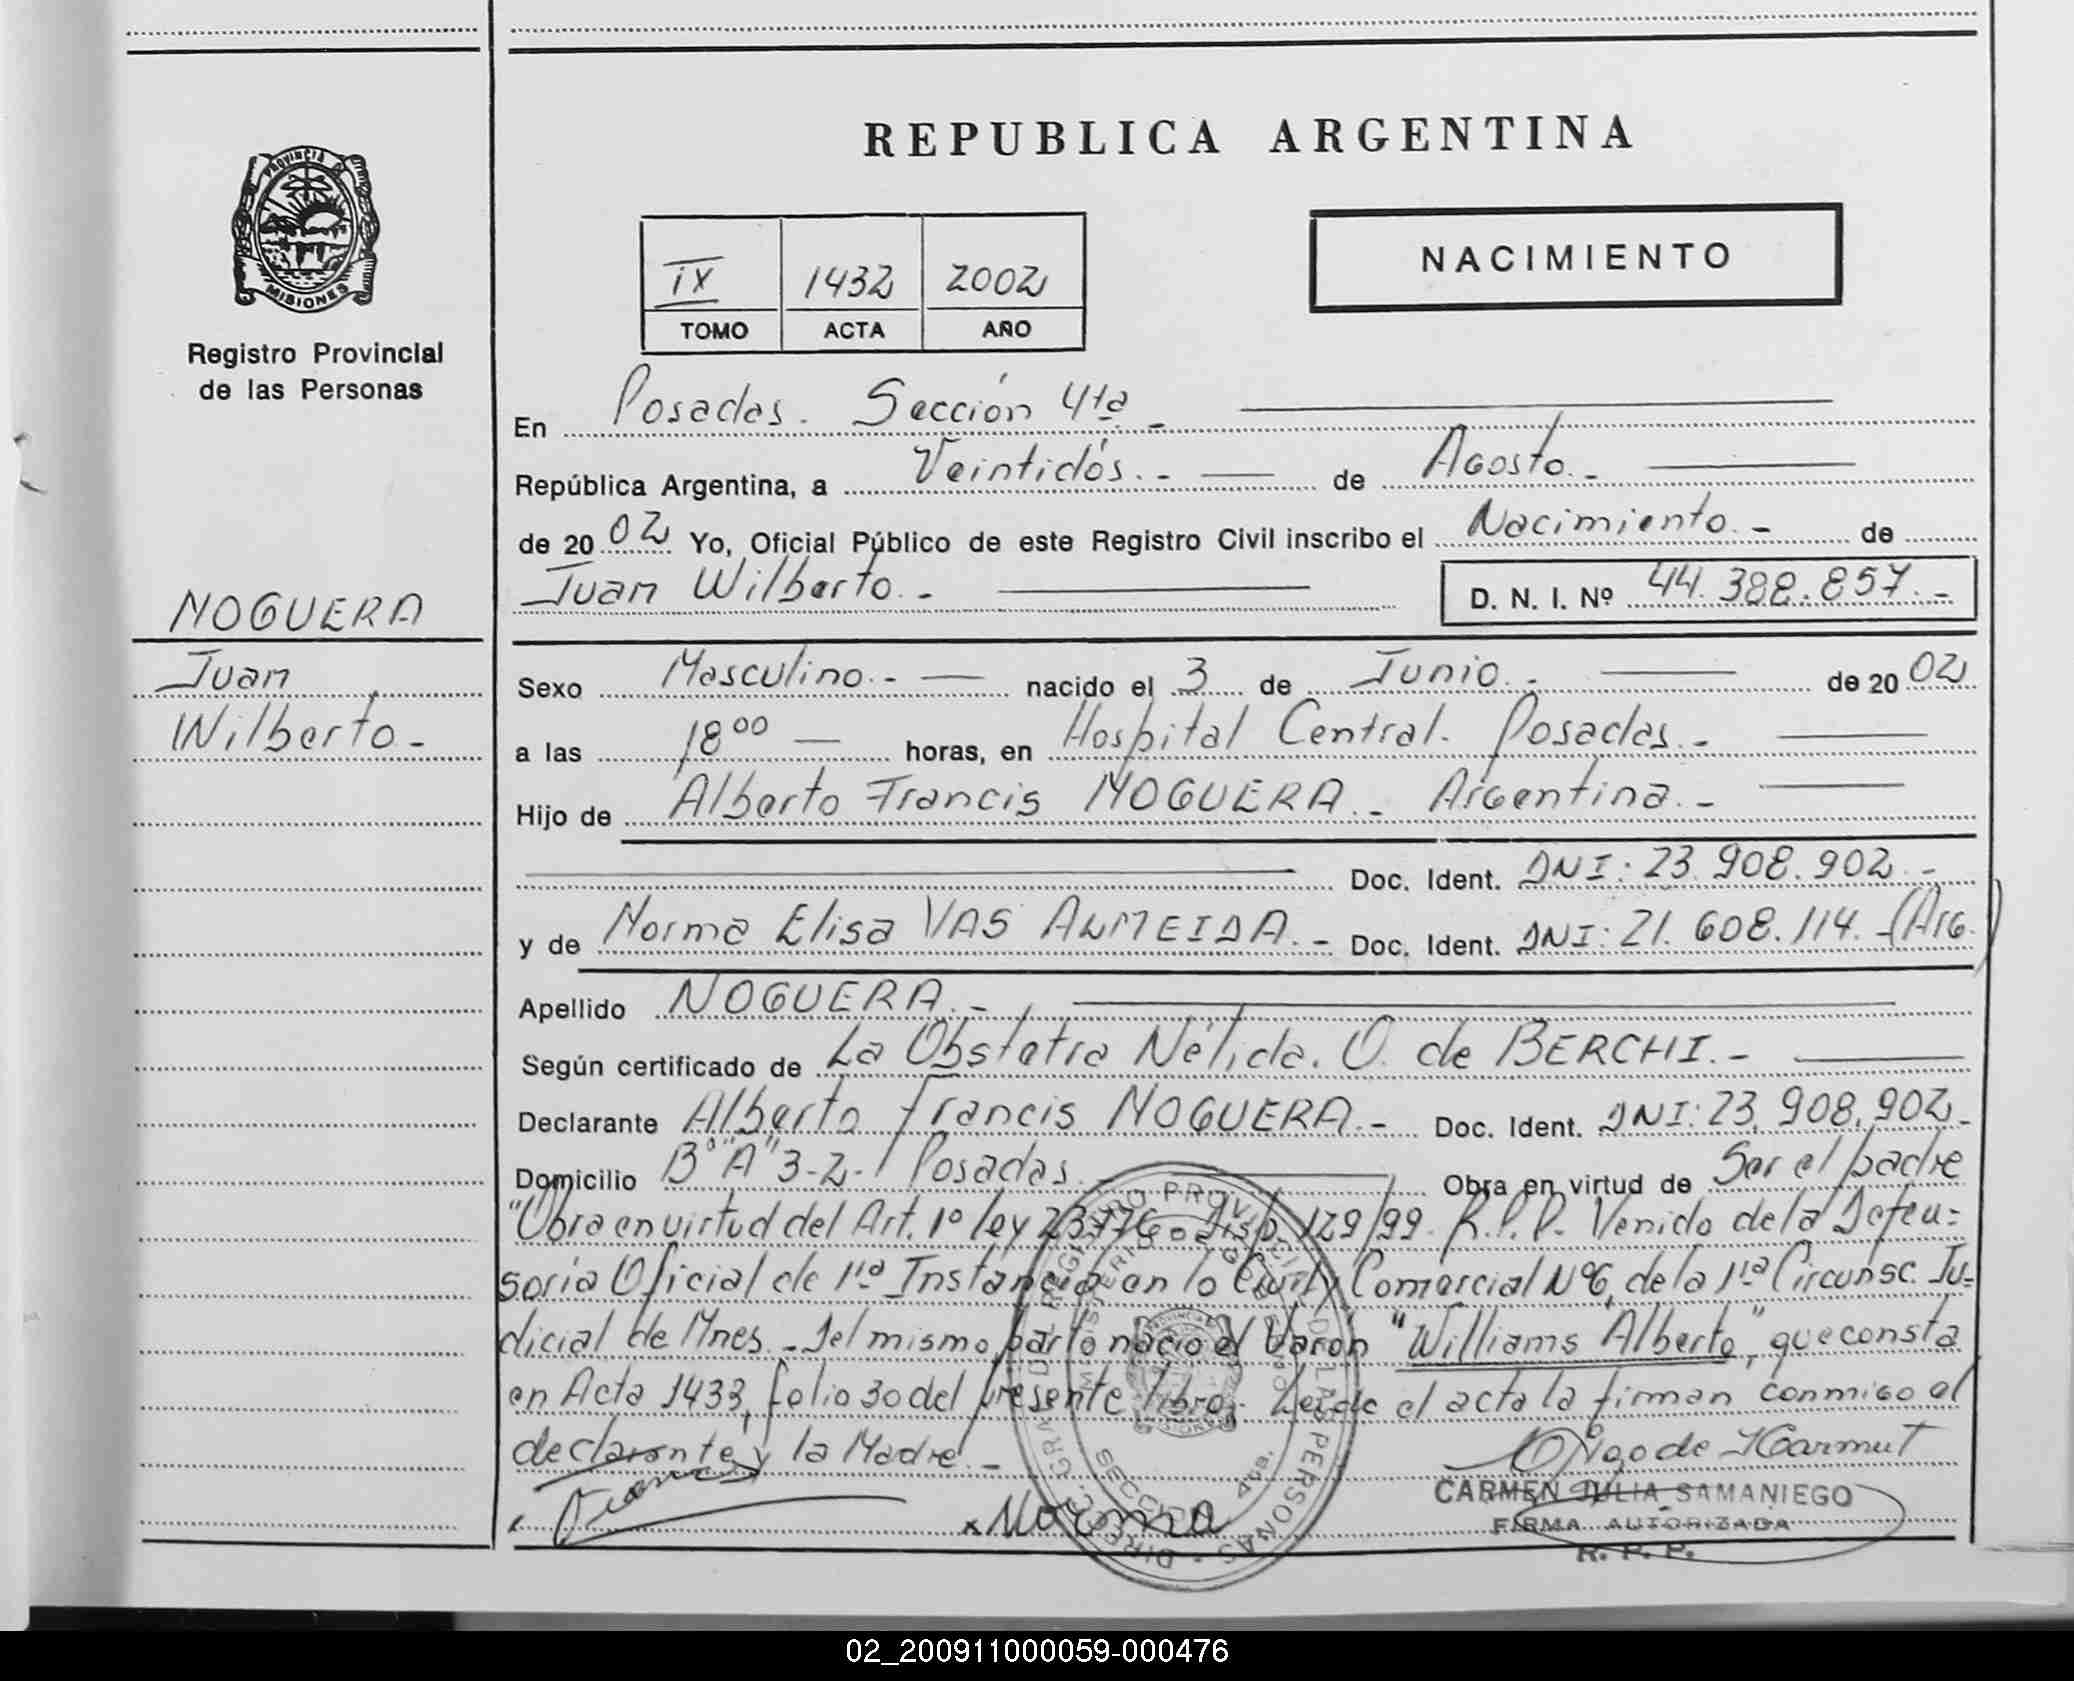 REPUBLICA ARGENTINA
PROVINCIA DE
MISIONES
Registro Provincial
de las Personas
NACIMIENTO
IX 1432 2002
TOMO ACTA AÑO
En Posadas. Sección 4ta.-
República Argentina, a Veintidós.- de Agosto.-
de 2002 Yo, Oficial Público de este Registro Civil inscribo el Nacimiento.- de
Juan Wilberto.- D. N. I. Nº 44.388.857.-
NOGUERA
Juan
Wilberto.-
Sexo Masculino.- nacido el 3 de Junio.- de 2002
a las 18⁰⁰ horas, en Hospital Central. Posadas.-
Hijo de Alberto Francis NOGUERA.- Argentina.-
Doc. Ident. DNI: 23.908.902.-
y de Norma Elisa VAS ALMEIDA.- Doc. Ident. DNI: 21.608.114.-(Arg.)
Apellido NOGUERA.-
Según certificado de La Obstetra Nélida. O. de BERCHI.-
Declarante Alberto Francis NOGUERA.- Doc. Ident. DNI: 23.908.902.-
Domicilio Bº"A" 3-2- Posadas.- Obra en virtud de Ser el padre
"Obra en virtud del Art. 1º ley 23776- Disp. 129/99. R.P.P. Venido de la Defen=
soria Oficial de 1ra Instancia en lo Civil y Comercial Nº6, de la 1ra Circunsc. Ju=
dicial de Mnes.- Del mismo parto nació el Varón "Williams Alberto", que consta
en Acta 1433, folio 30 del presente libro. Leida el acta la firman conmigo el
declarante y la Madre.-
x Norma
CARMEN JULIA SAMANIEGO
FIRMA AUTORIZADA
R. P. P.
02_200911000059-000476